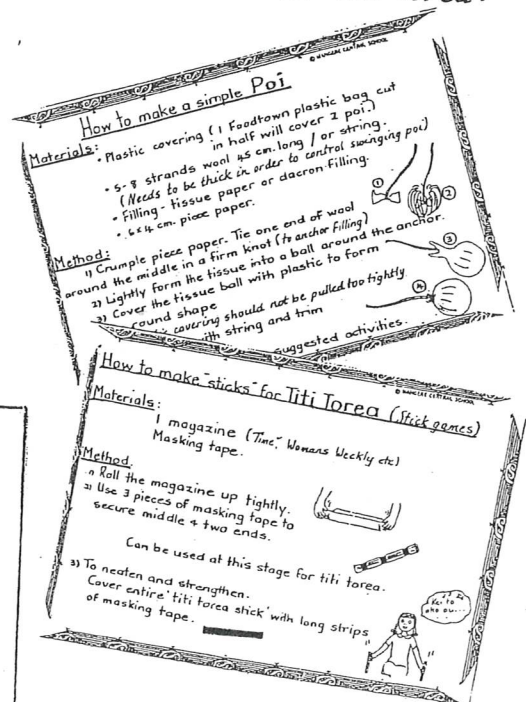 © MANGERE CENTRAL SCHOOL
How to make a simple Poi
Materials:
• Plastic covering (1 Foodtown plastic bag cut
in half will cover 2 poi.)
• 5-8 strands wool 45 cm. long / or string.
(Needs to be thick in order to control swinging poi)
• Filling - tissue paper or dacron filling.
• 6x4 cm. piece paper.
Method:
1) Crumple piece paper. Tie one end of wool
around the middle in a firm knot (to anchor filling)
2) Lightly form the tissue into a ball around the anchor.
3) Cover the tissue ball with plastic to form
round shape
covering should not be pulled too tightly.
with string and trim
suggested activities.
1
2
3
4
© MANGERE CENTRAL SCHOOL
How to make "sticks" for Titi Torea (Stick games)
Materials:
1 magazine (Time, Womans Weekly etc)
Masking tape.
Method.
1) Roll the magazine up tightly.
2) Use 3 pieces of masking tape to
secure middle & two ends.
Can be used at this stage for titi torea.
3) To neaten and strengthen.
Cover entire 'titi torea stick' with long strips
of masking tape.